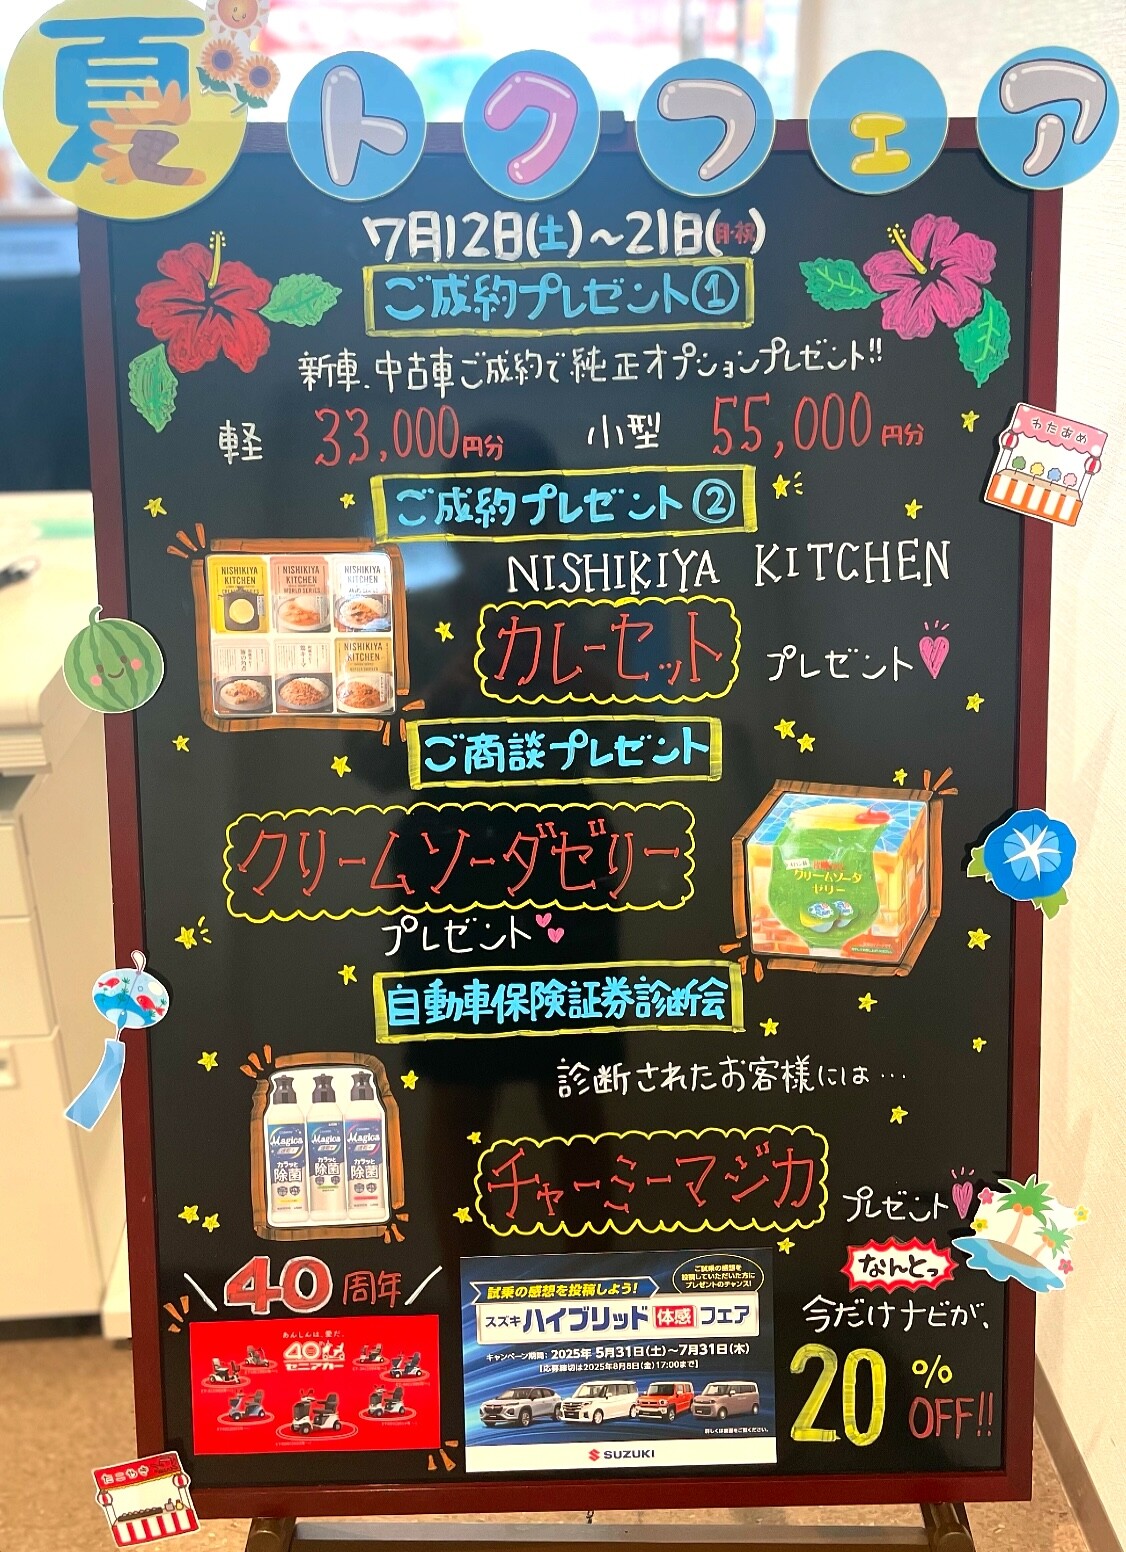 夏トクフェア
7月12日(土)～21日(月・祝)
ご成約プレゼント①
新車、中古車ご成約で純正オプションプレゼント!!
軽 33,000円分 小型 55,000円分
わたあめ
ご成約プレゼント②
NISHIKIYA KITCHEN
カレーセット プレゼント
NISHIKIYA KITCHEN
NISHIKIYA KITCHEN WORLD SERIES
NISHIKIYA KITCHEN
NISHIKIYA KITCHEN
ご商談プレゼント
クリームソーダゼリー
プレゼント
クリームソーダ
ゼリー
自動車保険証券診断会
診断されたお客様には…
Magica Magica Magica
カラッと カラッと カラッと
除菌 除菌 除菌
チャーミーマジカ プレゼント
40周年
あんしんは、愛だ。
40th
セニアカー
試乗の感想を投稿しよう!
ご試乗の感想を
投稿していただいた方に
プレゼントのチャンス!
スズキ ハイブリッド 体感 フェア
キャンペーン期間：2025年 5月31日(土)～7月31日(木)
[応募締切は2025年8月8日(金)17:00まで]
詳しくは裏面をご覧ください。
SUZUKI
なんとっ
今だけナビが、
20%
OFF!!
たこやき